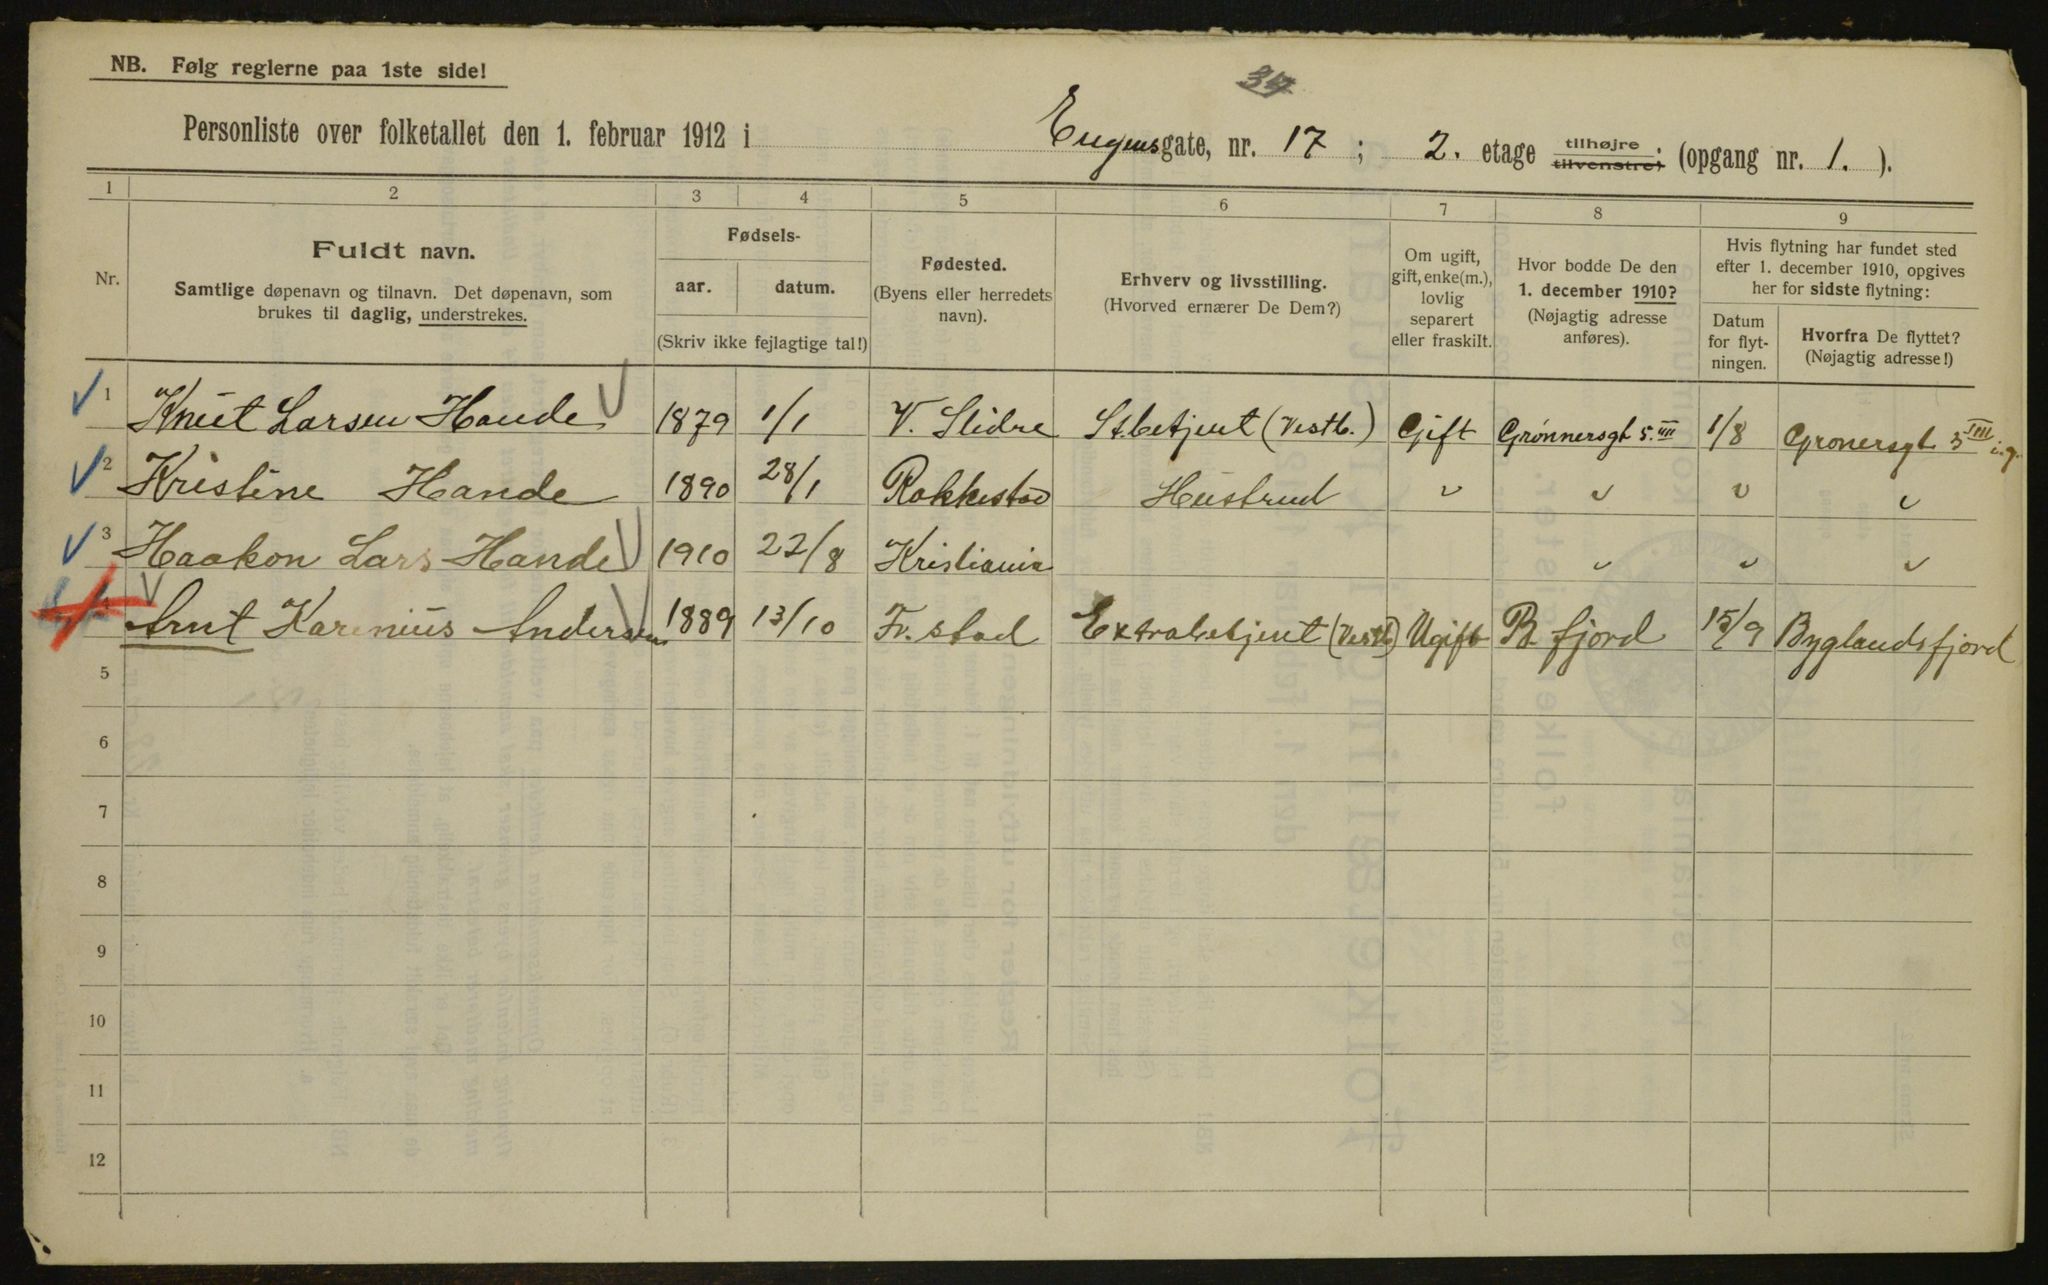 NB. Følg reglerne paa 1ste side!
34
Personliste over folketallet den 1. februar 1912 i Eugensgate, nr. 17; 2. etage tilhøjre tilvenstre; (opgang nr. 1.).
1 2 3 4 5 6 7 8 9
Nr.
Fuldt navn.
Samtlige døpenavn og tilnavn. Det døpenavn, som
brukes til daglig, understrekes.
Fødsels-
aar. datum.
(Skriv ikke fejlagtige tal!)
Fødested.
(Byens eller herredets
navn).
Erhverv og livsstilling.
(Hvorved ernærer De Dem?)
Om ugift,
gift, enke(m.),
lovlig
separert
eller fraskilt.
Hvor bodde De den
1. december 1910?
(Nøjagtig adresse
anføres).
Hvis flytning har fundet sted
efter 1. december 1910, opgives
her for sidste flytning:
Datum
for flyt-
ningen.
Hvorfra De flyttet?
(Nøjagtig adresse!)
1 Knut Larsen Hande 1879 1/1 V. Slidre St.betjent (Vestb.) Gift Grønnersgt 5. III 1/8 Gronersgt 5 III i.g.
2 Kristine Hande 1890 28/1 Rakkestad Hustrud " " " "
3 Haakon Lars Hande 1910 22/8 Kristiania " " "
4 Arnt Karenius Andersen 1889 13/10 Fr. stad Extrabetjent (Vestb) Ugift B. fjord 15/9 Byglandsfjord
5
6
7
8
9
10
11
12